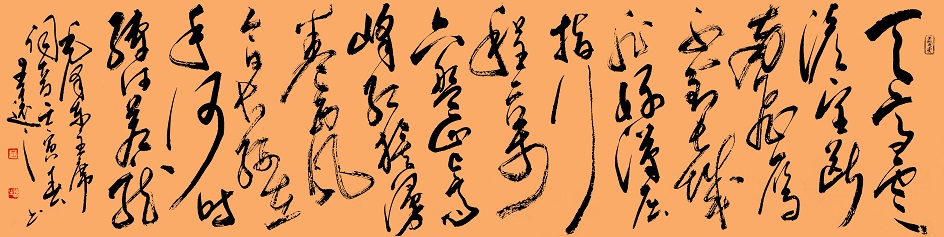 天高云
淡望断
南飞雁
不到长城
非好汉屈
指行
程二万
六盘山上高
峰红旗漫
卷西风
今日长缨在
手何时
缚住苍龙
毛泽东主席
词壬寅春书